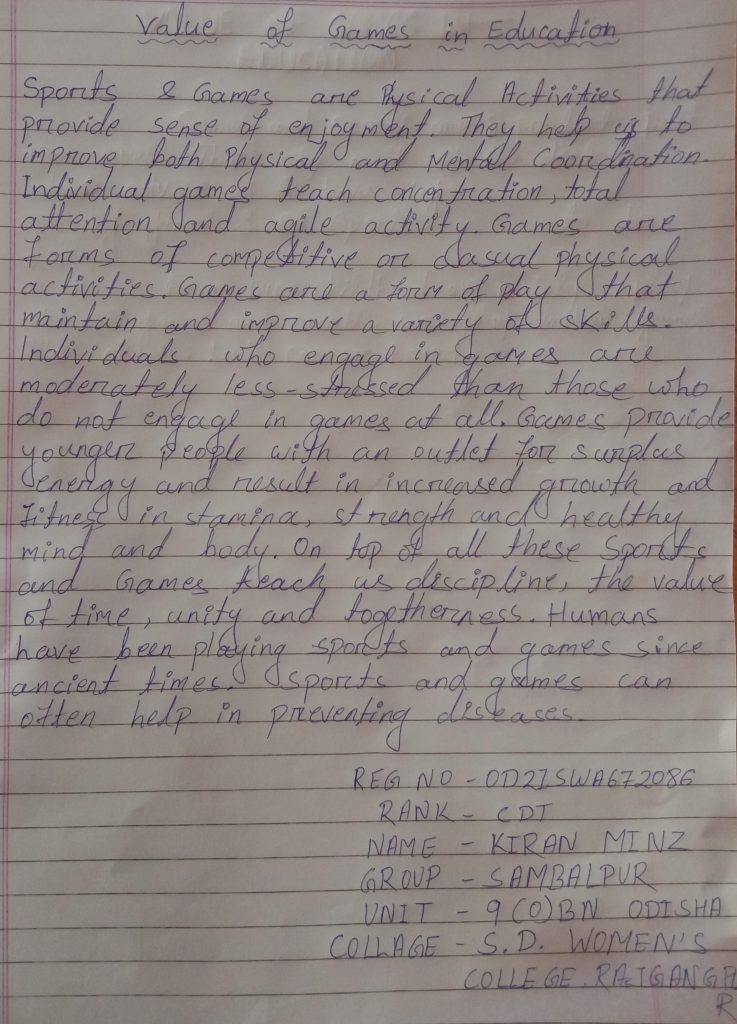 Value of Games in Education
Sports & Games are Physical Activities that
provide sense of enjoyment. They help us to
improve both Physical and Mental Coordination.
Individual games teach concentration, total
attention and agile activity. Games are
forms of competitive or casual physical
activities. Games are a form of play that
maintain and improve a variety of skills.
Individuals who engage in games are
moderately less-stressed than those who
do not engage in games at all. Games provide
younger people with an outlet for surplus
energy and result in increased growth and
fitness in stamina, strength and healthy
mind and body. On top of all these Sports
and Games teach us discipline, the value
of time, unity and togetherness. Humans
have been playing sports and games since
ancient times. Sports and games can
often help in preventing diseases.
REG NO - OD21SWA672086
RANK - CDT
NAME - KIRAN MINZ
GROUP - SAMBALPUR
UNIT - 9 (O) BN ODISHA
COLLAGE - S.D. WOMEN'S
COLLEGE. RAJGANGP
R